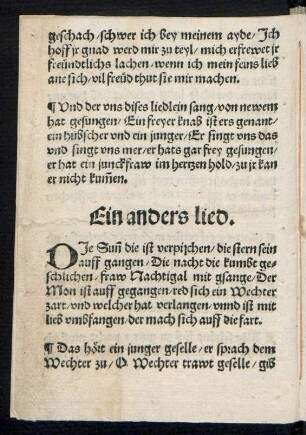 geschach / schwer ich bey meinem ayde / Ich
hoff jr gnad werd mir zu teyl / mich erfrewet jr
freündtlichs lachen / wenn ich mein feins lieb
ane sich / vil freüd thut sie mir machen.
¶ Und der vns dises liedlein sang / von newem
hat gesungen / Ein freyer knab ist ers genant /
ein hübscher vnd ein junger / Er singt vns das
vnd singt vns mer / er hats gar frey gesungen /
er hat ein junckfraw im hertzen hold / zu jr kan
er nicht kum̃en.
Ein anders lied.
DIe Sun̄ die ist verplichen / die stern sein
auff gangen / Die nacht die kumbt ge-
schlichen / fraw Nachtigal mit gsange / Der
Mon ist auff gegangen / red sich ein Wechter
zart / vnd welcher hat verlangen / vnnd ist mit
lieb vmbfangen / der mach sich auff die fart.
¶ Das hört ein junger geselle / er sprach dem
Wechter zu / O Wechter trawt geselle / gib